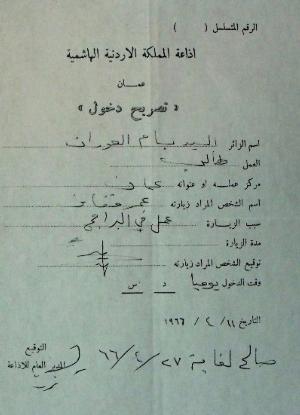 الرقم المتسلسل (      )
اذاعة المملكة الاردنية الهاشمية
عمان
« تصريح دخول »
اسم الزائر السيد
العمل طالب
مركز عمله او عنوانه عمان
اسم الشخص المراد زيارته عمر
سبب الزيارة عمل في البرامج
مدة الزيارة
توقيع الشخص المراد زيارته
وقت الدخول يوميا د س
التاريخ ١٩٦٦ / ٢ /
صالح لغاية ٢٧ / ٢ / ٦٦
التوقيع
المدير العام للاذاعة